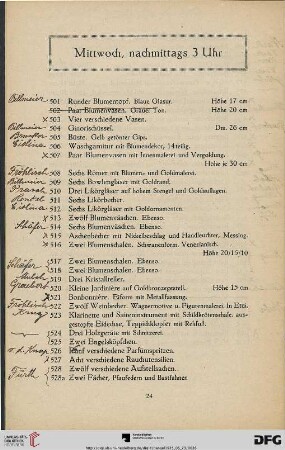 Mittwoch, nachmittags 3 Uhr
Billmeier 501 Runder Blumentopf. Blaue Glasur. Höhe 17 cm
502 Paar Blumenvasen. Grauer Ton. Höhe 20 cm
× 503 Vier verschiedene Vasen.
Billmeier 504 Ginorischüssel. Dm. 26 cm
505 Büste. Gelb getönter Gips.
506 Waschgarnitur mit Blumendekor, 14teilig.
× 507 Paar Blumenvasen mit Innenmalerei und Vergoldung.
Höhe je 30 cm
508 Sechs Römer mit Blumen- und Goldmalerei.
509 Sechs Bowlengläser mit Goldrand.
510 Drei Likörgläser auf hohem Stengel und Goldauflagen.
511 Sechs Likörbecher.
512 Sechs Likörgläser mit Goldornamenten.
× 513 Zwölf Blumenväschen. Ebenso.
Schäfer 514 Sechs Blumenväschen. Ebenso.
× 515 Aschenbecher mit Niderbeschlag und Handleuchter, Messing.
× 516 Zwei Blumenschalen. Schwanenform. Venetianisch.
Höhe 20/15/10
Schäfer 517 Zwei Blumenschalen. Ebenso.
518 Zwei Blumenschalen. Ebenso.
519 Drei Kristallteller.
520 Kleine Jardinière auf Goldbronzegestell. Höhe 15 cm
× 521 Bonbonnière. Eiform mit Metallfassung.
522 Zwölf Weinbecher. Wagnermotive u. Figurenmalerei in Etui.
Krug 523 Klarinette und Saiteninstrument mit Schildkröteneinlage, ausgestopfte Eidechse, Teppichklopfer mit Rehfuß.
524 Drei Holzgeräte mit Schnitzerei.
525 Zwei Engelsköpfchen.
526 Fünf verschiedene Parfumspritzen.
527 Acht verschiedene Rauchutensilien.
Fürth 528 Zwölf verschiedene Aufstellsachen.
528a Zwei Fächer, Pfaufedern und Bastfahner
24
DFG